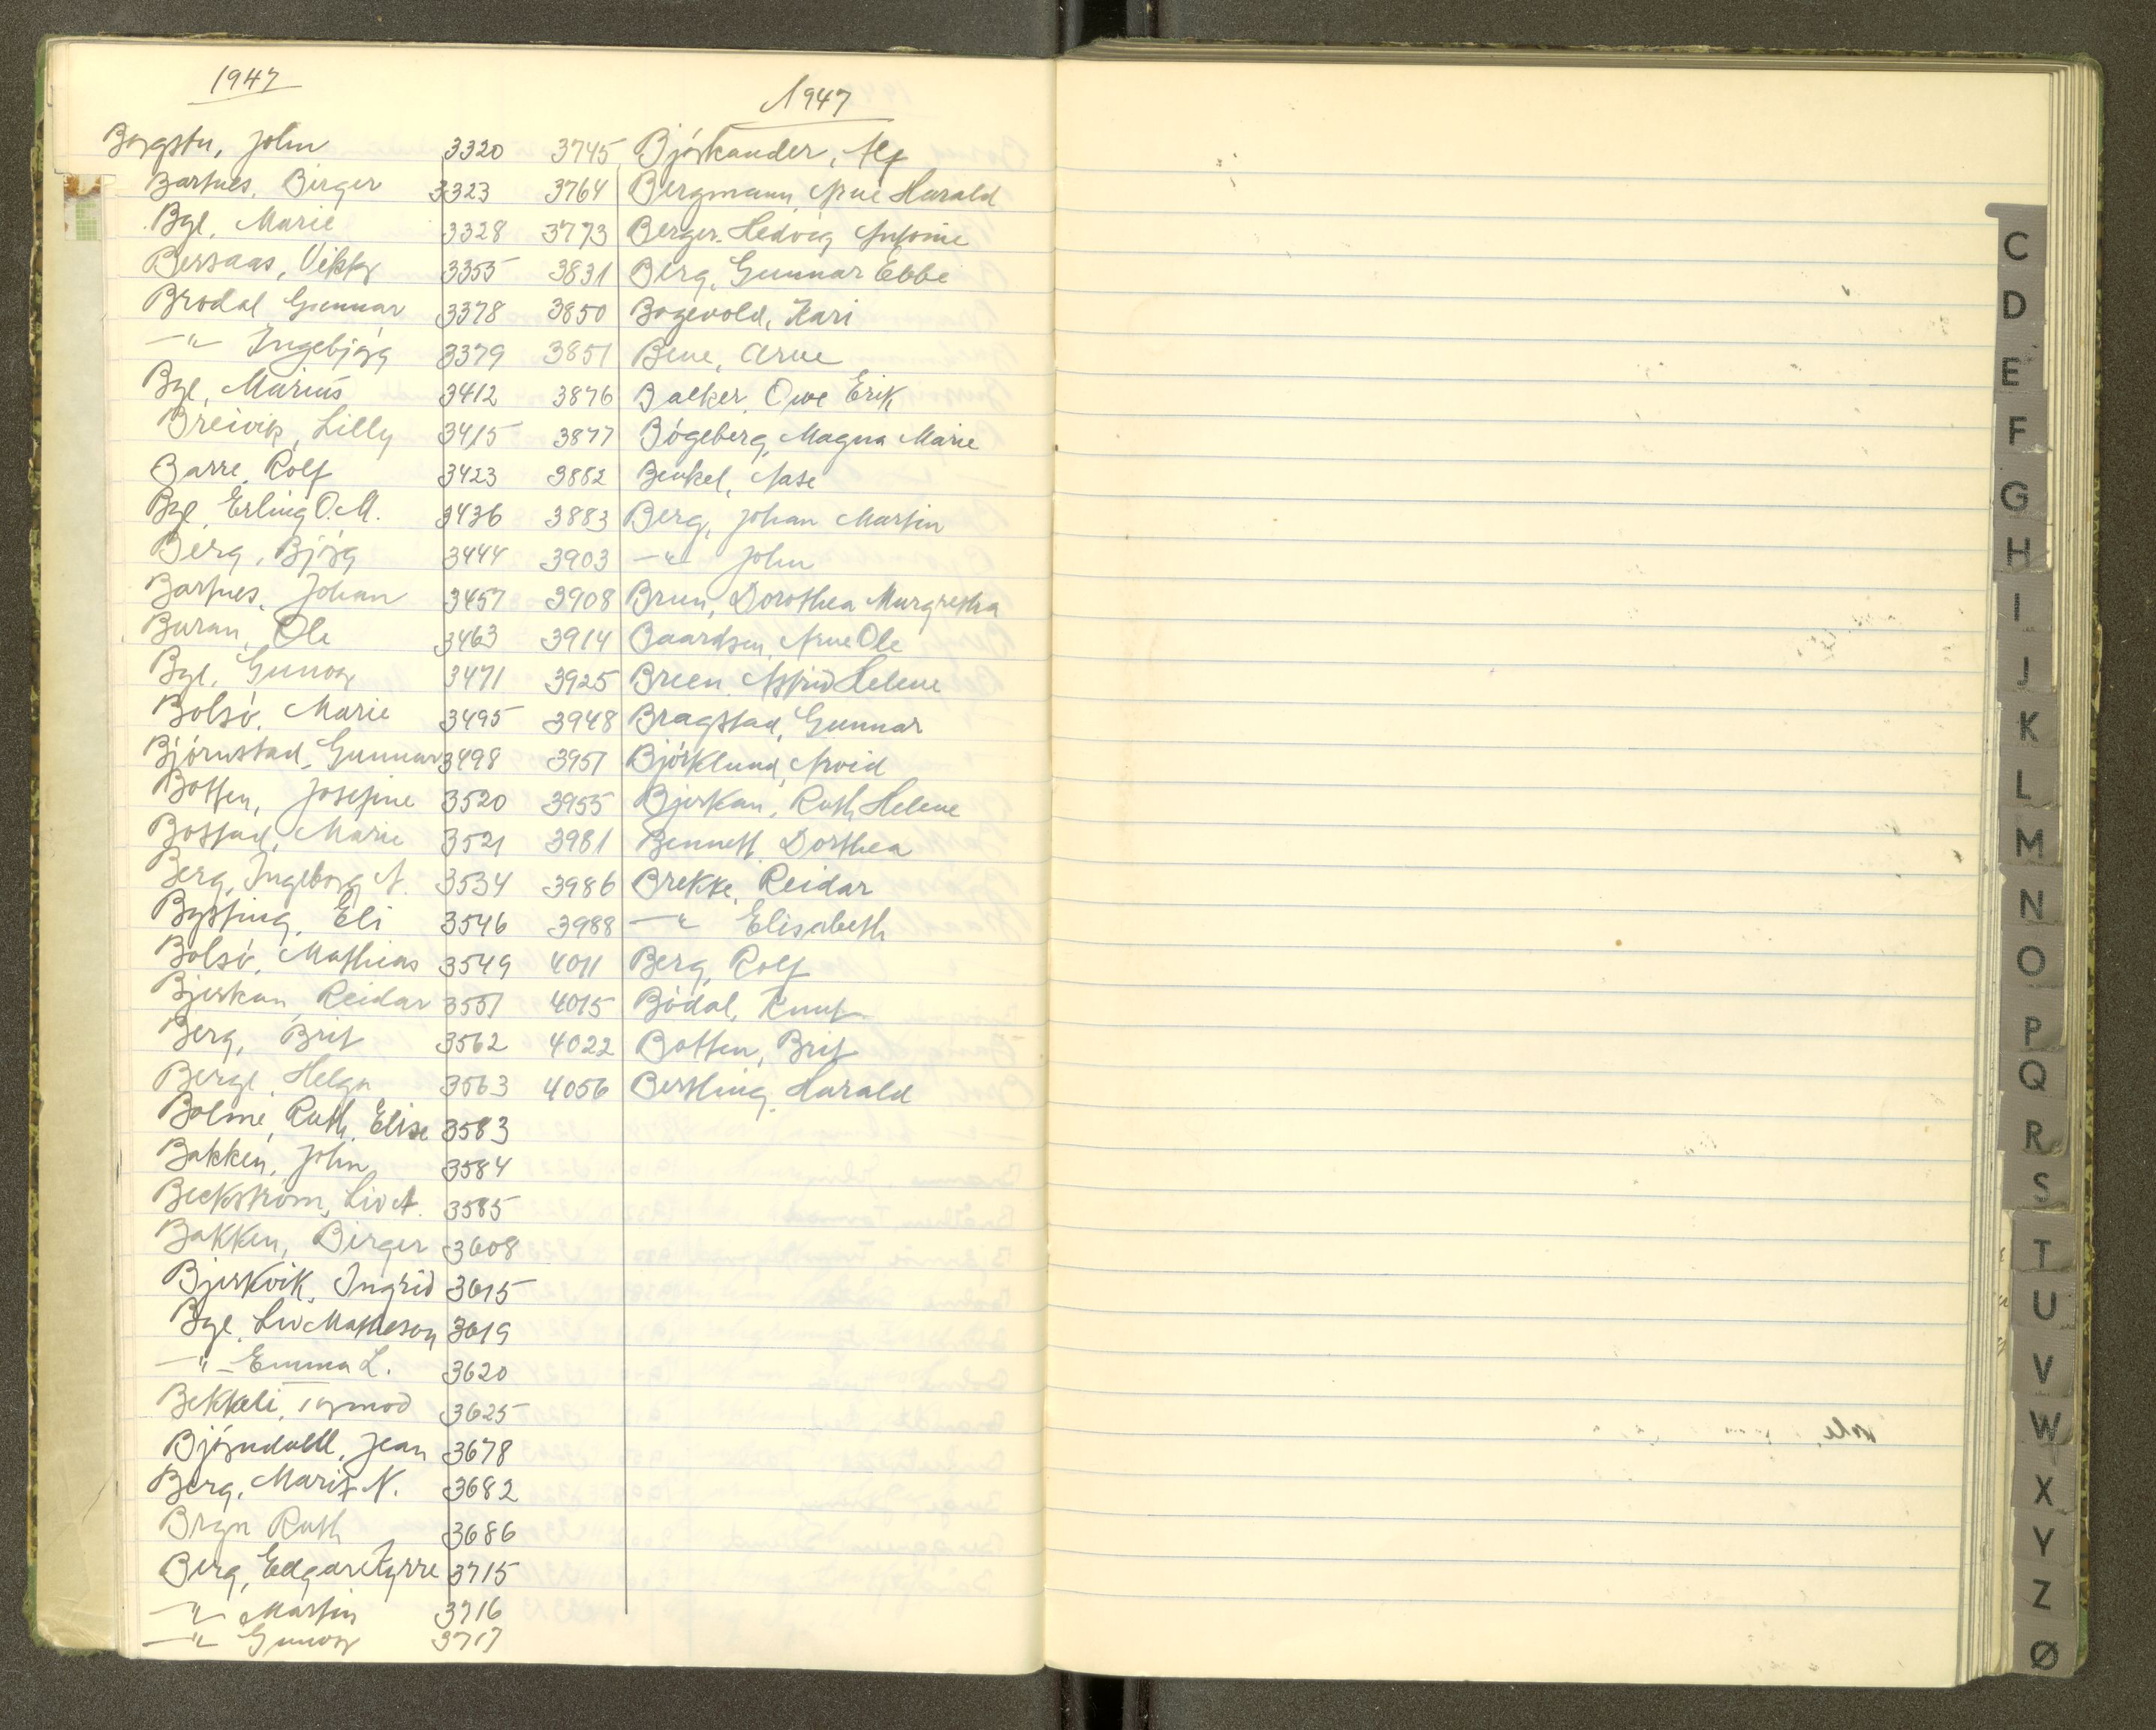 1947
Borgsten, John 3320
Barsnes, Birger 3323
Bye, Marie 3328
Bersaas, Vikky 3355
Brødal Gunnar 3378
—"— Ingebjørg 3379
Bye, Marius 3412
Breivik, Lilly 3415
Barre, Rolf 3423
Bye, Erling O. M. 3436
Berg, Bjørg 3444
Barsnes, Johan 3457
Buran, Ole 3463
Bye, Gunvor 3471
Bolsø, Marie 3495
Bjørnstad, Gunnar 3498
Botten, Josefine 3520
Bostad, Marie 3521
Berg, Ingeborg A. 3534
Bysting, Eli 3546
Bolsø, Mathias 3549
Bjerkan, Reidar 3551
Berg, Brit 3562
Berge, Helga 3563
Bolme, Ruth, Elise 3583
Bakken, John 3584
Beckstrøm, Liv A. 3585
Bakken, Birger 3608
Bjerkvik, Ingrid 3615
Bye, Liv Matheson 3619
—"— Emma L. 3620
Bekkeli, Tormod 3625
Bjørndall, Jean 3678
Berg, Marit N. 3682
Bryn Ruth 3686
Berg, Edgar Kyrre 3715
—"— Martin 3716
—"— Gunvor 3717
1947
3745 Bjørkander, Alf
3764 Bergmann, Arne Harald
3773 Berger, Hedvig Antonie
3831 Berg, Gunnar Ebbe
3850 Bogevold, Kari
3851 Bene, Arne
3876 Balker, Owe Erik
3877 Bøgeberg, Magna Marie
3882 Benkel, Aase
3883 Berg, Johan Martin
3903 —"— John
3908 Brun, Dorothea Margretha
3914 Baardsen, Arne Ole
3925 Breen, Astrid Helene
3948 Bragstad, Gunnar
3951 Bjørklund, Arvid
3955 Bjerkan, Ruth Helene
3981 Bennett, Dorthea
3986 Brekke, Reidar
3988 —"— Elisabeth
4011 Berg, Rolf
4015 Bødal, Knut
4022 Botten, Brit
4056 Berthling, Harald
C
D
E
F
G
H
I
J
K
L
M
N
O
P
Q
R
S
T
U
V
W
X
Y
Z
Ø